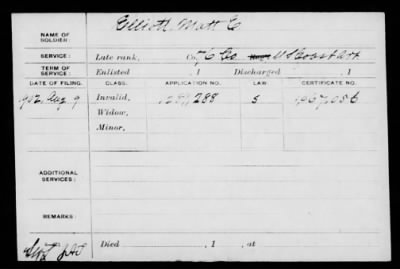 NAME OF SOLDIER: Elliott, Matt E.
SERVICE: Late rank, Co. U S Coast Art
TERM OF SERVICE: Enlisted , 1 Discharged , 1
DATE OF FILING. CLASS. APPLICATION NO. LAW. CERTIFICATE NO.
1902, Aug. 9 Invalid, 1,288 S
Widow,
Minor,
ADDITIONAL SERVICES:
REMARKS:
Died , 1 , at